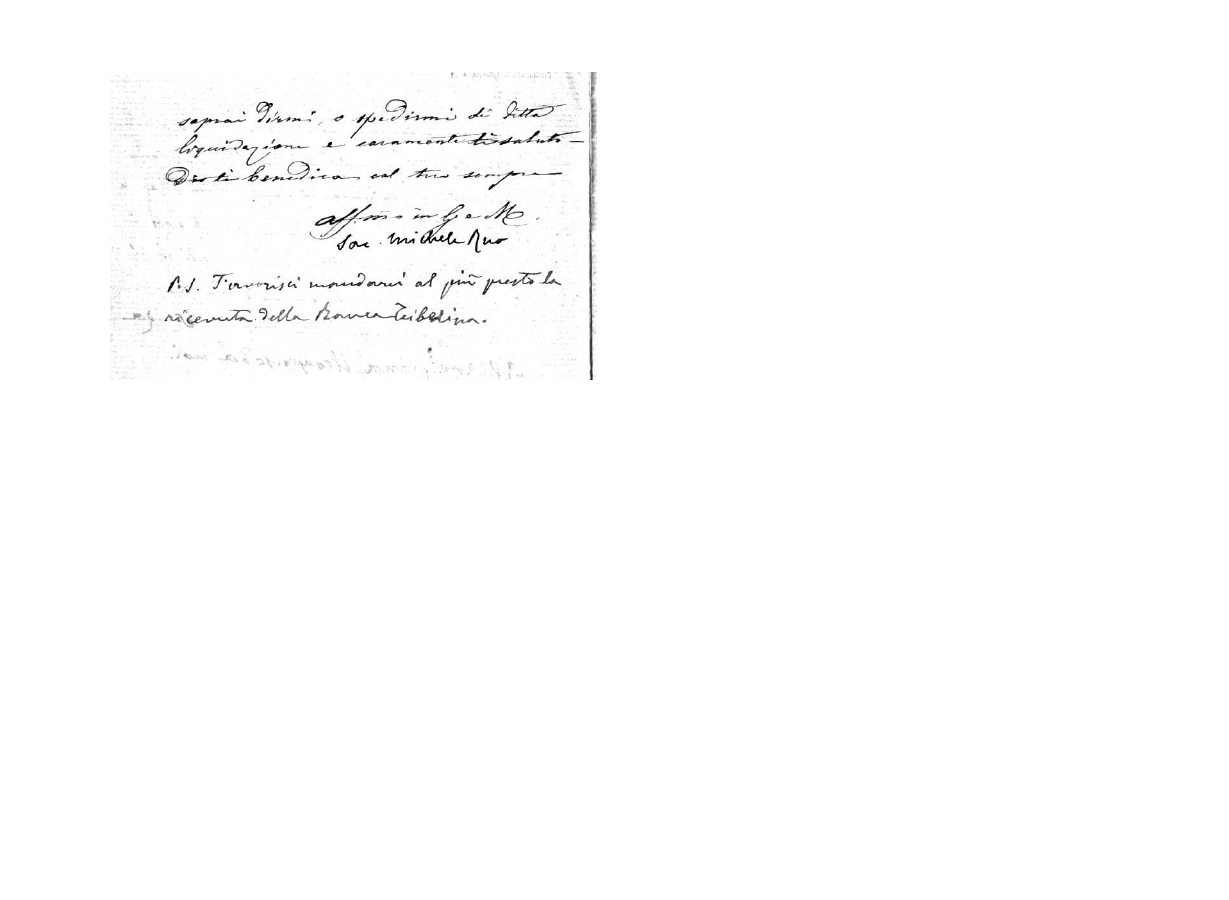 saprai dirmi, o spedirmi di detta
liquidazione e caramente ti saluto —
Dio ti benedica col tuo sempre
Aff.mo in G e M.
Sac. Michele Rua
P.S. Favorisci mandarci al più presto la
ricevuta della Banca Tiberina.